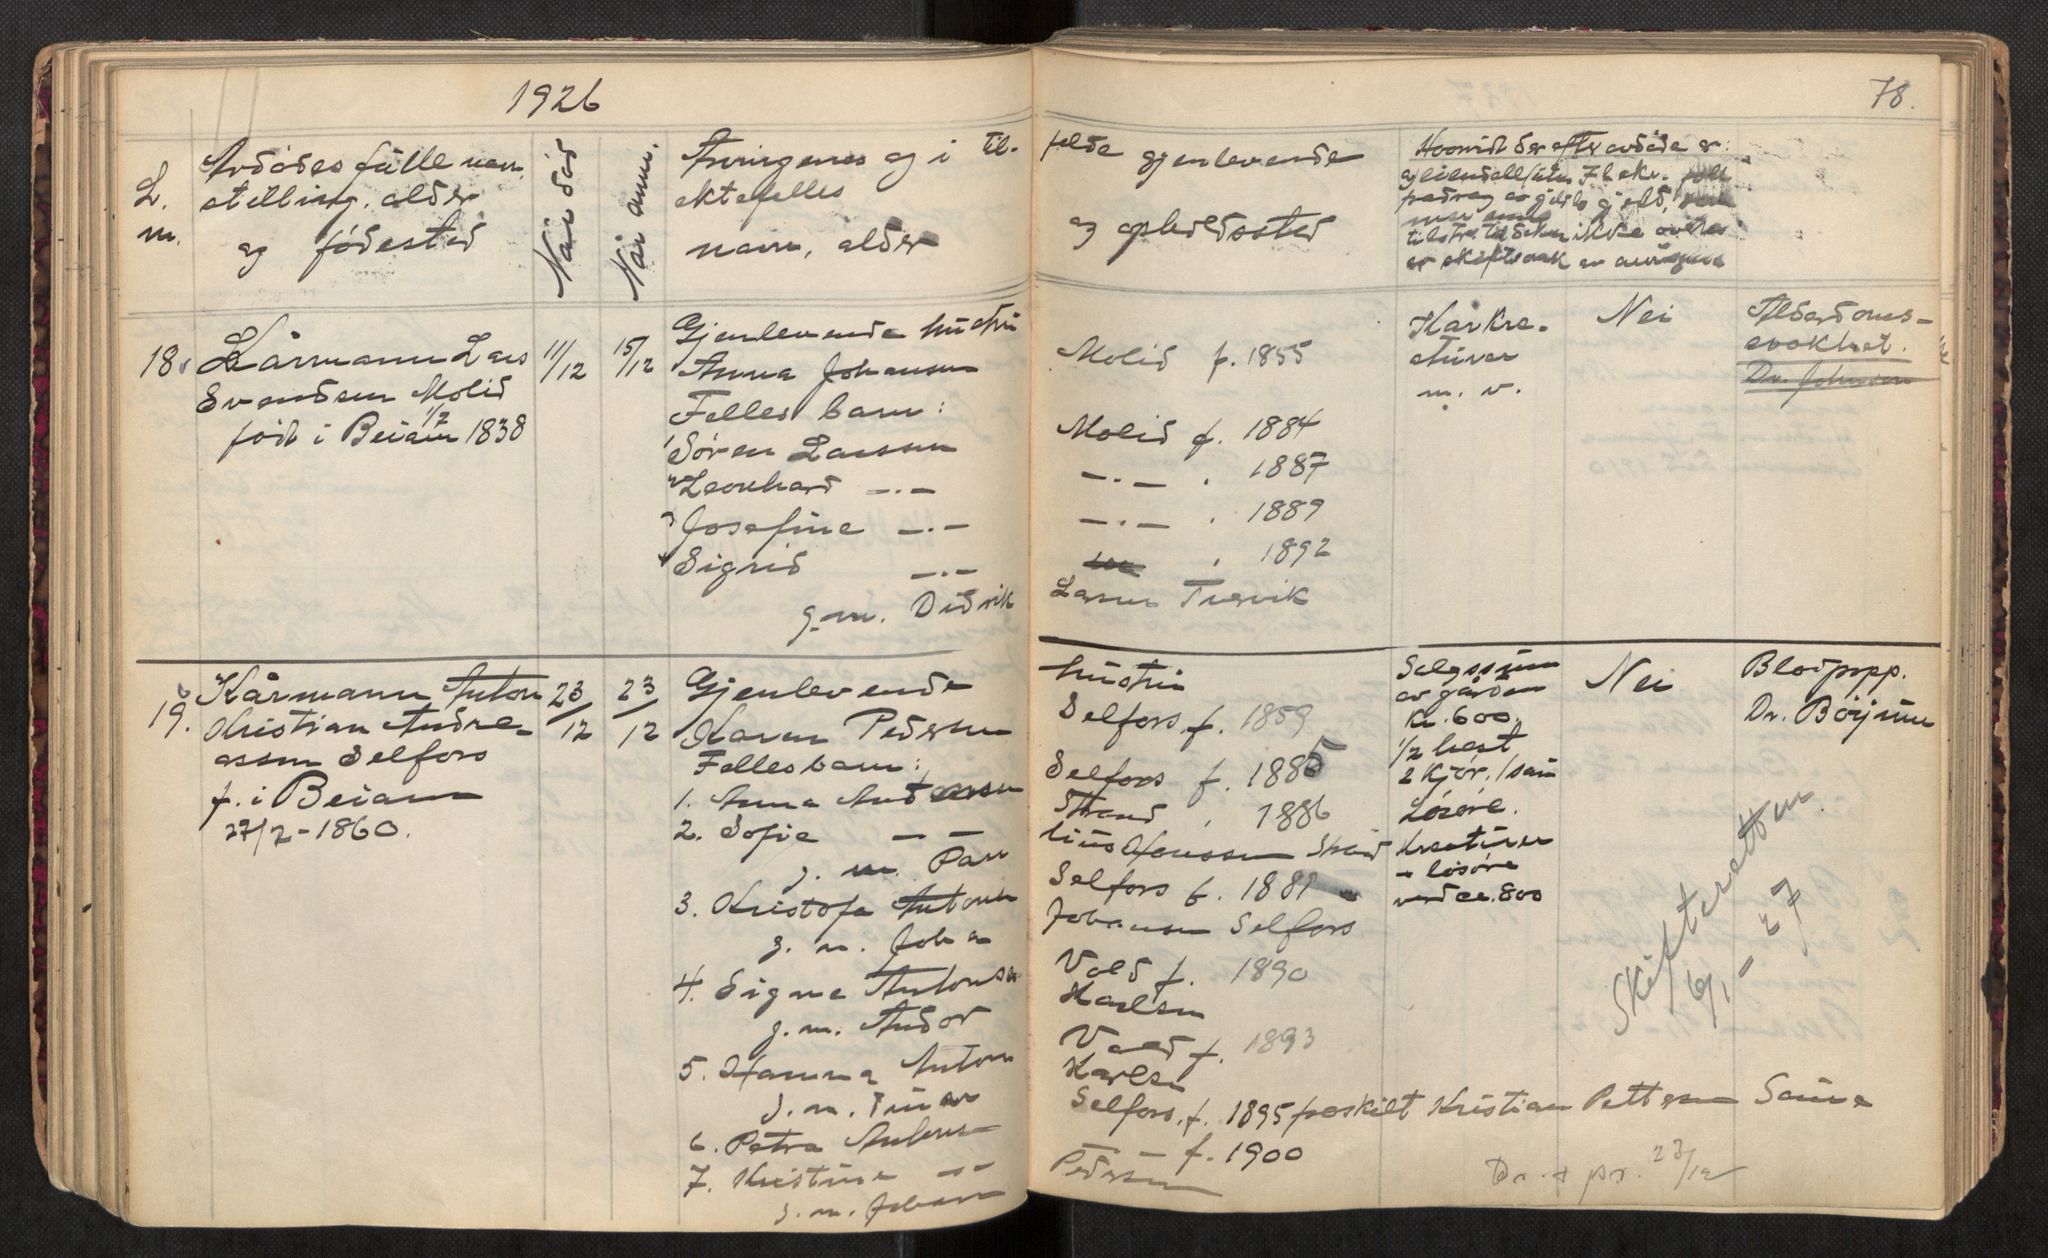 1926
78.
L.
m.
Avdødes fulle navn,
stilling, alder
og fødested
Når død
Når anm.
Arvingenes og i til-
ektefelles
navn, alder
felde gjenlevende
og opholdssted
Hvorvidt der efter avdøde er:
18. Kårmann Lars
Svendsen Molid
født i Beiarn 1/2 1838
11/12
15/12
Gjenlevende hustru
Anna Johansen
Felles barn:
1 Søren Larssen
2 Leonhard —.—
3 Josefine —.—
4 Sigrid —.—
g.m. Didrik
Molid f. 1855
Molid f. 1884
—.— . 1887
—.— . 1889
. 1892
Larsen Tvervik
Kår kre-
aturer
m. v.
Nei
Alderdoms-
svakhet.
Dr. Johnsen
19. Kårmann Anton
Kristian Andre-
assen Selfors
f. i Beiarn
27/2 - 1860.
23/12
23/12
Gjenlevende
Karen Pedersen
Felles barn:
1. Anna Antonsen
2. Sofie — —
g. m. Pau
3. Kristofa Antonsen
g. m. Joha
4. Signe Antonsen
g. m. Andor
5. Hanna Anton
g. m. Einar
6. Petra Antonsen
7. Kristine — —
g. m. Johan
hustru
Selfors f. 1859
Selfors f. 1885
Strand . 1886
linus Hanssen Strand
Selfors f. 188
Johansen Selfors
Vold f. 1890
Karlsen
Vold f. 1893
Karlsen
Selfors f. 1895 fraskilt Kristian Pettersen Saura
— — f. 1900
Pedersen
Salgssum
av gården
kr. 600.
1/2 hest
2 kjør, 1 sau
Løsøre.
Kreaturer
- løsøre
verd ca. 800
Nei
Blodpropp.
Dr. Börjeson
Skifteretten
6/1 - 27
Dr. + pr. 23/12